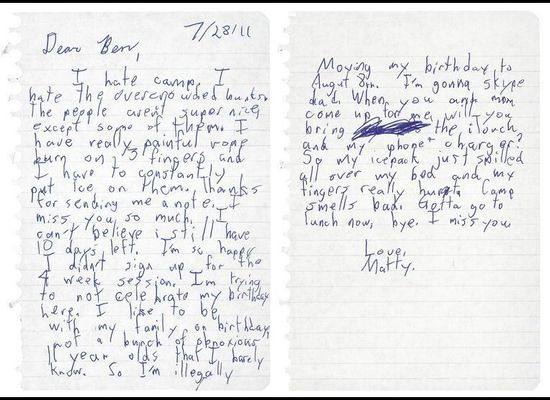 7/28/11
Dear Ben,
I hate camp. I
hate the overcrowded bunks.
The people arent super nice,
except some of them. I
have really painful rope
burn on 1/3 fingers and
I have to constantly
put ice on them. Thanks
for sending me a note. I
miss you so much. I
can't believe i still have
10 days left. I'm so happy
I didn't sign up for the
4 week session. I'm trying
to not celebrate my birthday
here. I like to be
with my family on birthday
not a bunch of obnoxious
11 year olds that I barely
know. So I'm illegally
Moving my birthday to
August 8th. I'm gonna skype
dad. When you and mom
come up for me, will you
bring the ilonch
and my phone + charger?
So my icepack just spilled
all over my bed and my
fingers really hurt. Camp
smells bad. Gotta go to
lunch now, bye. I miss you.
Love,
Matty.